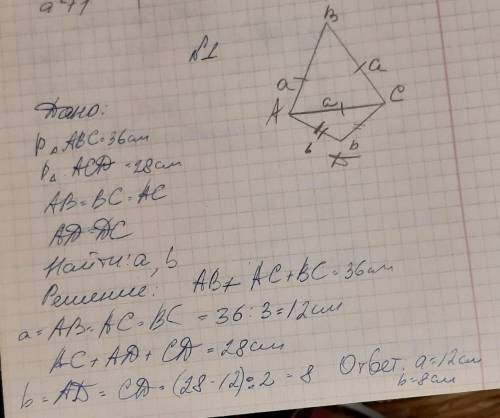 №1
B
a
a
A
a
C
b
b
D
Дано:
P△ ABC=36см
P△ ACD=28см
AB=BC=AC
AD=DC
Найти: a, b
Решение: AB+AC+BC=36см
a=AB=AC=BC=36:3=12см
AC+AD+CD=28см
b=AD=CD=(28-12):2=8
Ответ: a=12см
b=8см